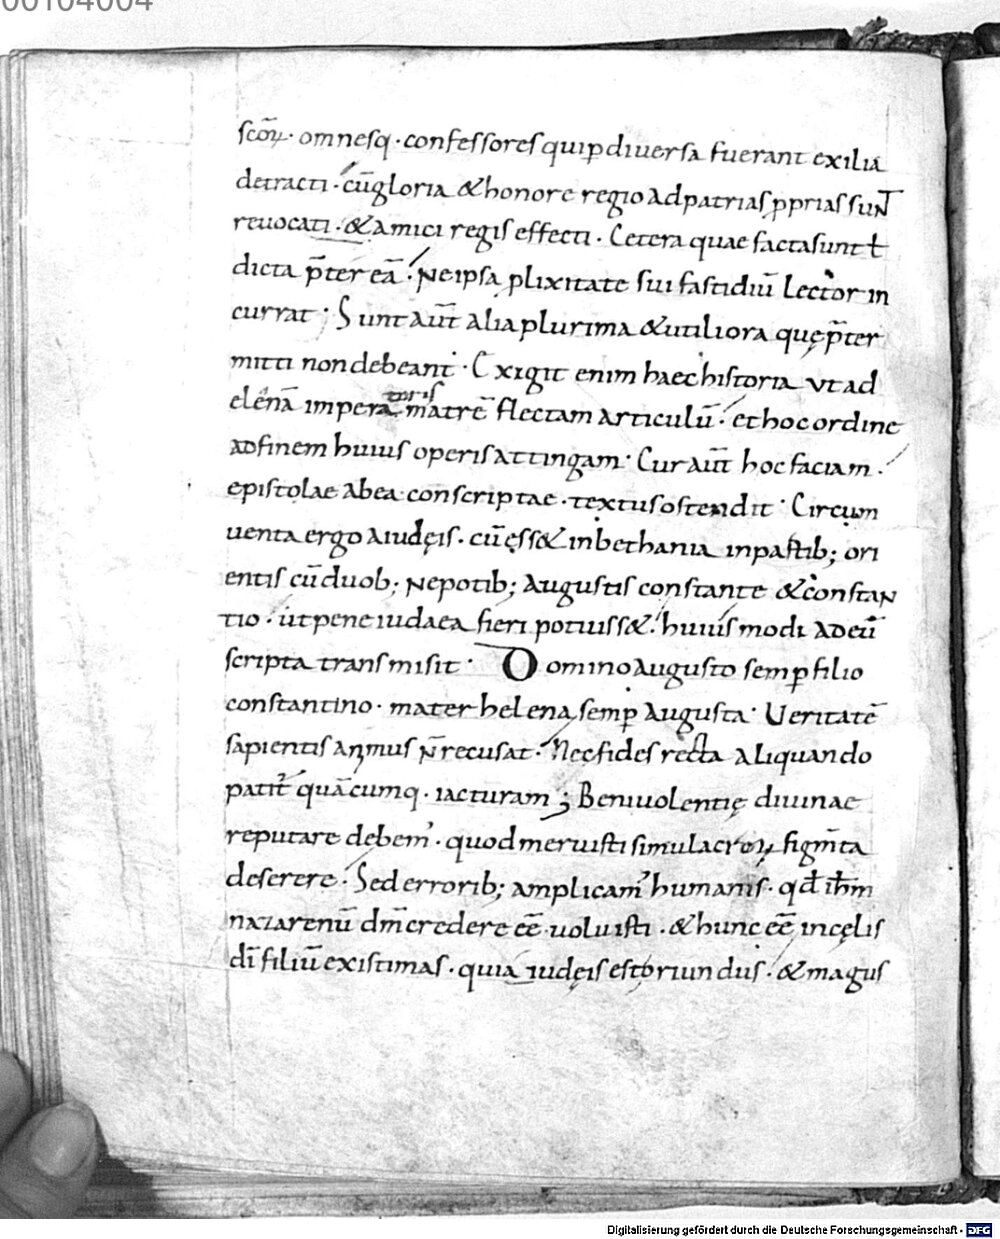 00104004
scoꝝ· omnesq· confessores qui ꝑ diversa fuerant exilia
detracti · cū gloria & honore regio ad patrias ꝓprias sunt̄
revocati · & amici regis effecti · Cetera quae facta sunt ł
dicta p̄ter eā · Ne ipsa plixitate sui fastidiū Lector in
currat · Sunt aūt alia plurima & utiliora quę p̄ter
mitti non debeant · Exigit enim haec historia ut ad
elenā imperatoris matrē flectam articulū · et hoc ordine
ad finem huius operis attingam · Cur aūt hoc faciam ·
epistolae ab ea conscriptae · textus ostendit · Circum
venta ergo a iudęis · cū ęss& in bethania in partib; ori
entis cū duob; Nepotib; Augustis constante & constan
tio · ut pene iudaea fieri potuiss& · huius modi ad eū
scripta transmisit · Domino augusto semꝑ filio
constantino · mater helena semꝑ augusta · Ueritatē
sapientis animus n̄ recusat · Nec fides recta aliquando
patit̄ quācumq · iacturam ; Benivolentię divinae
reputare debem' · quod meruisti simulacroꝝ figm̄ta
deserere · Sed errorib; amplicam' humanis · qđ ih̄m
nazarenū dm̄ credere eē voluisti · & hunc eē in cęlis
dī filiū existimas · quia iudęis est oriundus · & magus
Digitalisierung gefördert durch die Deutsche Forschungsgemeinschaft - DFG